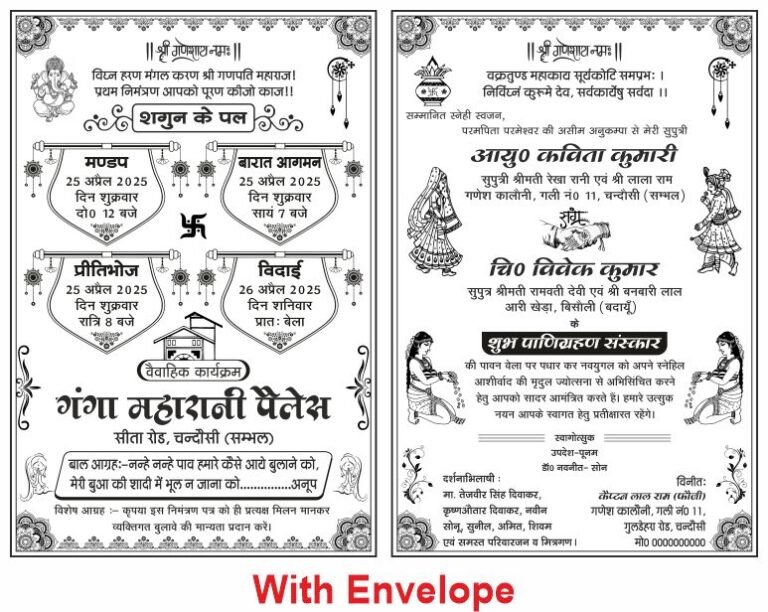 || श्री गणेशाय नमः ||
विघ्न हरण मंगल करण श्री गणपति महाराज!
प्रथम निमंत्रण आपको पूरण कीजो काज!!
शगुन के पल
मण्डप
25 अप्रेल 2025
दिन शुक्रवार
दो0 12 बजे
बारात आगमन
25 अप्रेल 2025
दिन शुक्रवार
सायं 7 बजे
प्रीतिभोज
25 अप्रेल 2025
दिन शुक्रवार
रात्रि 8 बजे
विदाई
26 अप्रेल 2025
दिन शनिवार
प्रातः बेला
वैवाहिक कार्यक्रम
गंगा महारानी पैलेस
सीता रोड, चन्दौसी (सम्भल)
बाल आग्रहः-नन्हे नन्हे पाव हमारे कैसे आये बुलाने को,
मेरी बुआ की शादी में भूल न जाना को...............अनूप
विशेष आग्रह :- कृपया इस निमंत्रण पत्र को ही प्रत्यक्ष मिलन मानकर
व्यक्तिगत बुलावे की मान्यता प्रदान करें।
|| श्री गणेशाय नमः ||
वक्रतुण्ड महाकाय सूर्यकोटि समप्रभः ।
निर्विघ्नं कुरूमे देव, सर्वकार्येषु सर्वदा ।।
सम्मानित स्नेही स्वजन,
परमपिता परमेश्वर की असीम अनुकम्पा से मेरी सुपुत्री
आयु0 कविता कुमारी
सुपुत्री श्रीमती रेखा रानी एवं श्री लाला राम
गणेश कालोनी, गली नं0 11, चन्दौसी (सम्भल)
संग
चि0 विवेक कुमार
सुपुत्र श्रीमती रामवती देवी एवं श्री बनबारी लाल
आरी खेड़ा, बिसौली (बदायूँ)
के
शुभ पाणिग्रहण संस्कार
की पावन वेला पर पधार कर नवयुगल को अपने स्नेहिल
आशीर्वाद की मृदुल ज्योत्सना से अभिसिंचित करने
हेतु आपको सादर आमंत्रित करते हैं। हमारे उत्सुक
नयन आपके स्वागत हेतु प्रतीक्षारत रहेगे।
स्वागोत्सुक
उपदेश-पूनम
डॉ0 नवनीत- सोन
दर्शनाभिलाषी :
मा. तेजवीर सिंह दिवाकर,
कृष्णऔतार दिवाकर, नवीन
सोनू, सुनील, अमित, शिवम
एवं समस्त परिवारजन व मित्रगण।
विनीतः
कैप्टन लाल राम (फौजी)
गणेश कालौनी, गली नं0 11,
गुलडेहरा रोड, चन्दौसी
मो0 0000000000
With Envelope